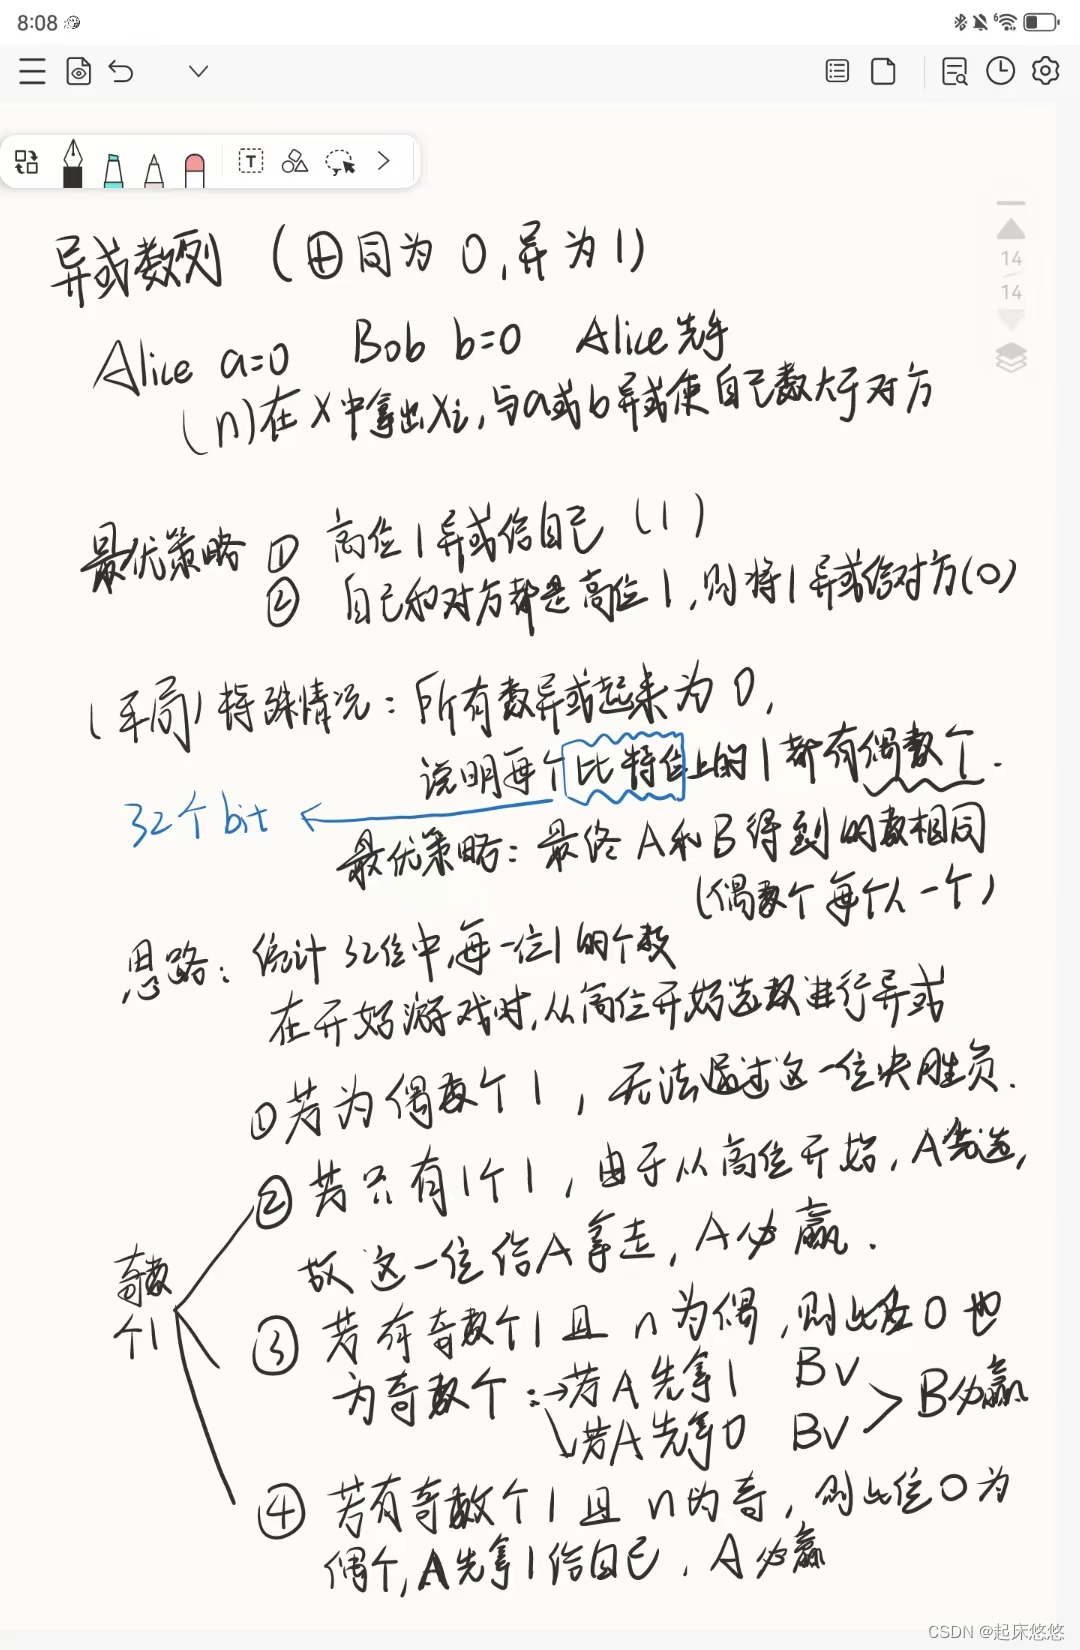 8:08
T
14
14
异或数列 (⊕同为0,异为1)
Alice a=0 Bob b=0 Alice先手
(n)在X中拿出Xi,与a或b异或使自己数大于对方
最优策略 ① 高位1异或给自己 (1)
② 自己和对方都是高位1,则将1异或给对方(0)
(平局)特殊情况:所有数异或起来为0,
说明每个比特位上的1都有偶数个.
32个bit
最优策略:最终A和B得到的数相同
(偶数个每个人一个)
思路:统计32位中,每一位1的个数
在开始游戏时,从高位开始选数进行异或
①若为偶数个1,无法通过这一位决胜负.
②若只有1个1,由于从高位开始,A先选,
故这一位给A拿走,A必赢.
奇数
个1
③若有奇数个1且n为偶,则此位0也
为奇数个:→若A先拿1 B✓
若A先拿0 B✓ > B必赢
④若有奇数个1且n为奇,则此位0为
偶个,A先拿1给自己,A必赢
CSDN @起床悠悠